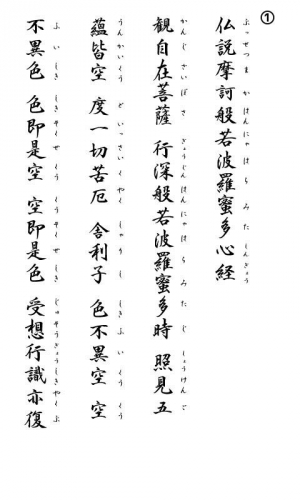 ①
ぶっせつ ま か はんにゃ は ら み た しんぎょう
仏説摩訶般若波羅蜜多心経
かん じ ざい ぼ さつ ぎょうじんはんにゃ は ら み た じ しょうけん ご
観自在菩薩 行深般若波羅蜜多時 照見五
うんかいくう ど いっさい く やく しゃ り し しき ふ い くう くう
蘊皆空 度一切苦厄 舎利子 色不異空 空
ふ い しき しきそく ぜ くう くうそく ぜ しき じゅそうぎょうしきやく ぶ
不異色 色即是空 空即是色 受想行識亦復